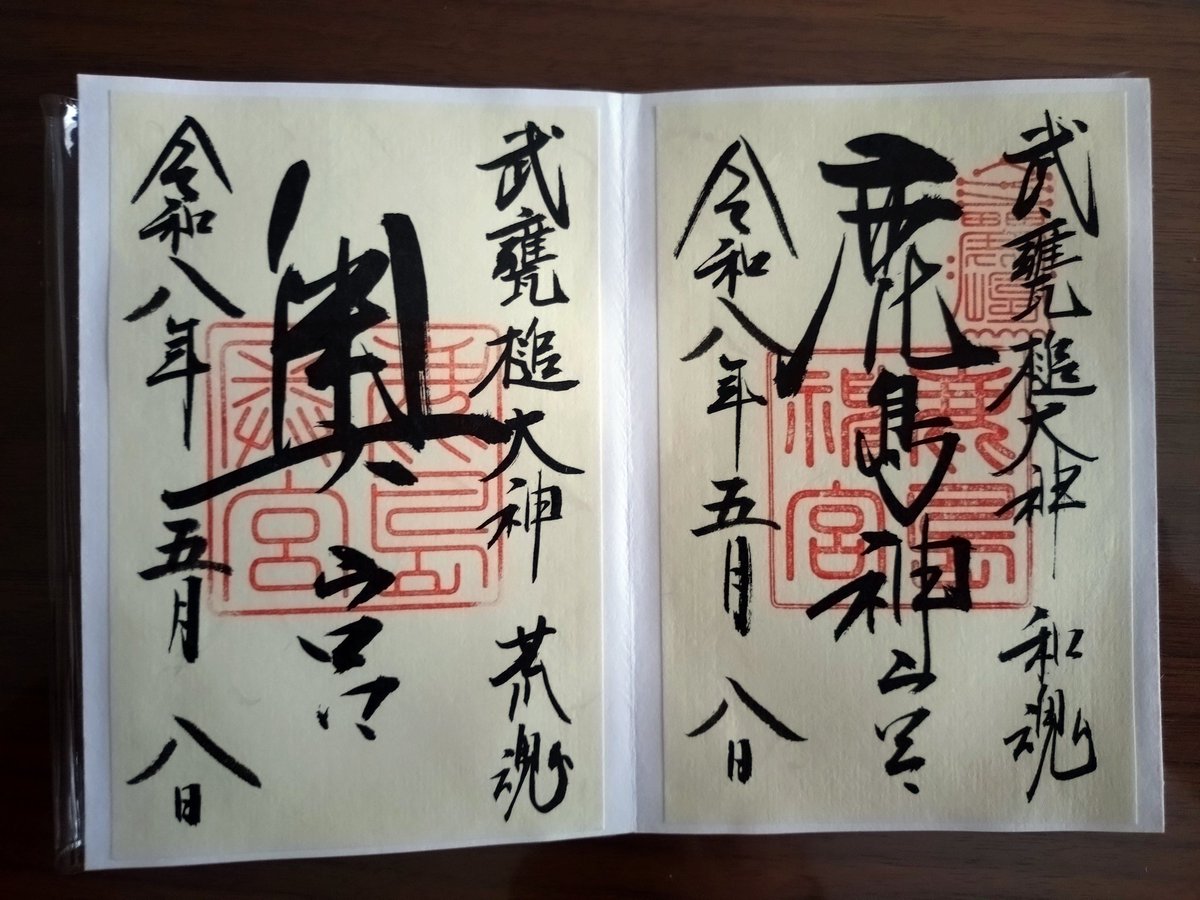 武甕槌大神 和魂
鹿島神宮
令和八年五月八日
鹿島神宮
武甕槌大神 荒魂
奥宮
令和八年五月八日
鹿島奥宮